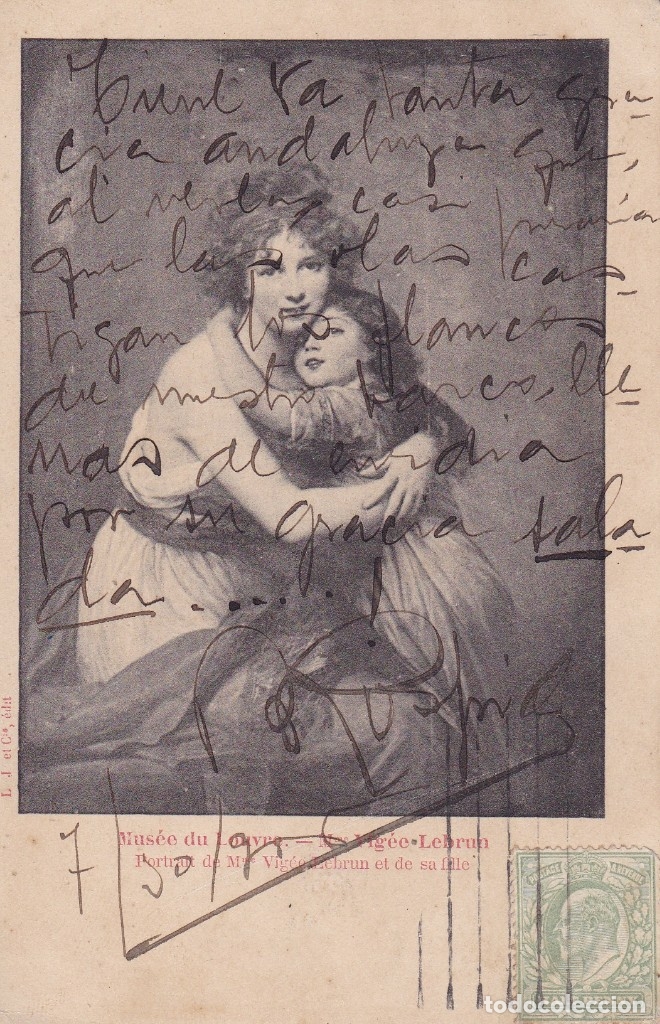 Tiene Vd tanta gra-
cia andaluza que,
al verla, casi juraría
que las olas cas-
tigan los flancos
de nuestro barco, lle-
nas de envidia
por su gracia sala-
da.....!
L. J. et Cie, édit
7/30/905
Musée du Louvre. — Mme Vigée-Lebrun
Portrait de Mme Vigée-Lebrun et de sa fille
todocoleccion